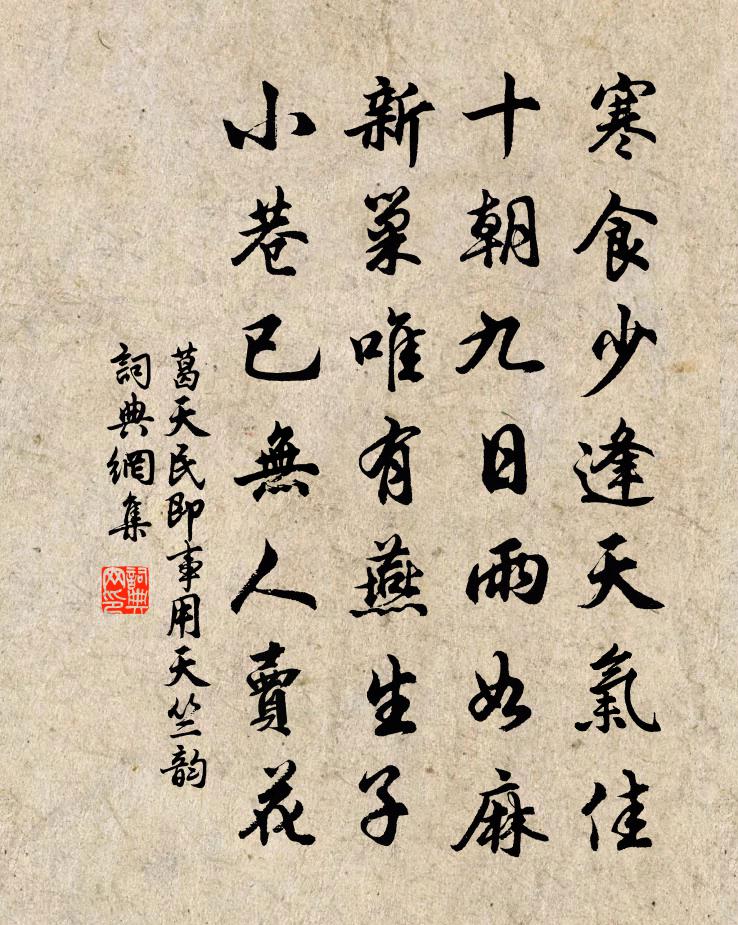 寒食少逢天氣佳
十朝九日雨如麻
新巢唯有燕生子
小巷已無人賣花
葛天民即事用天竺韵
詞典網集
詞典网印